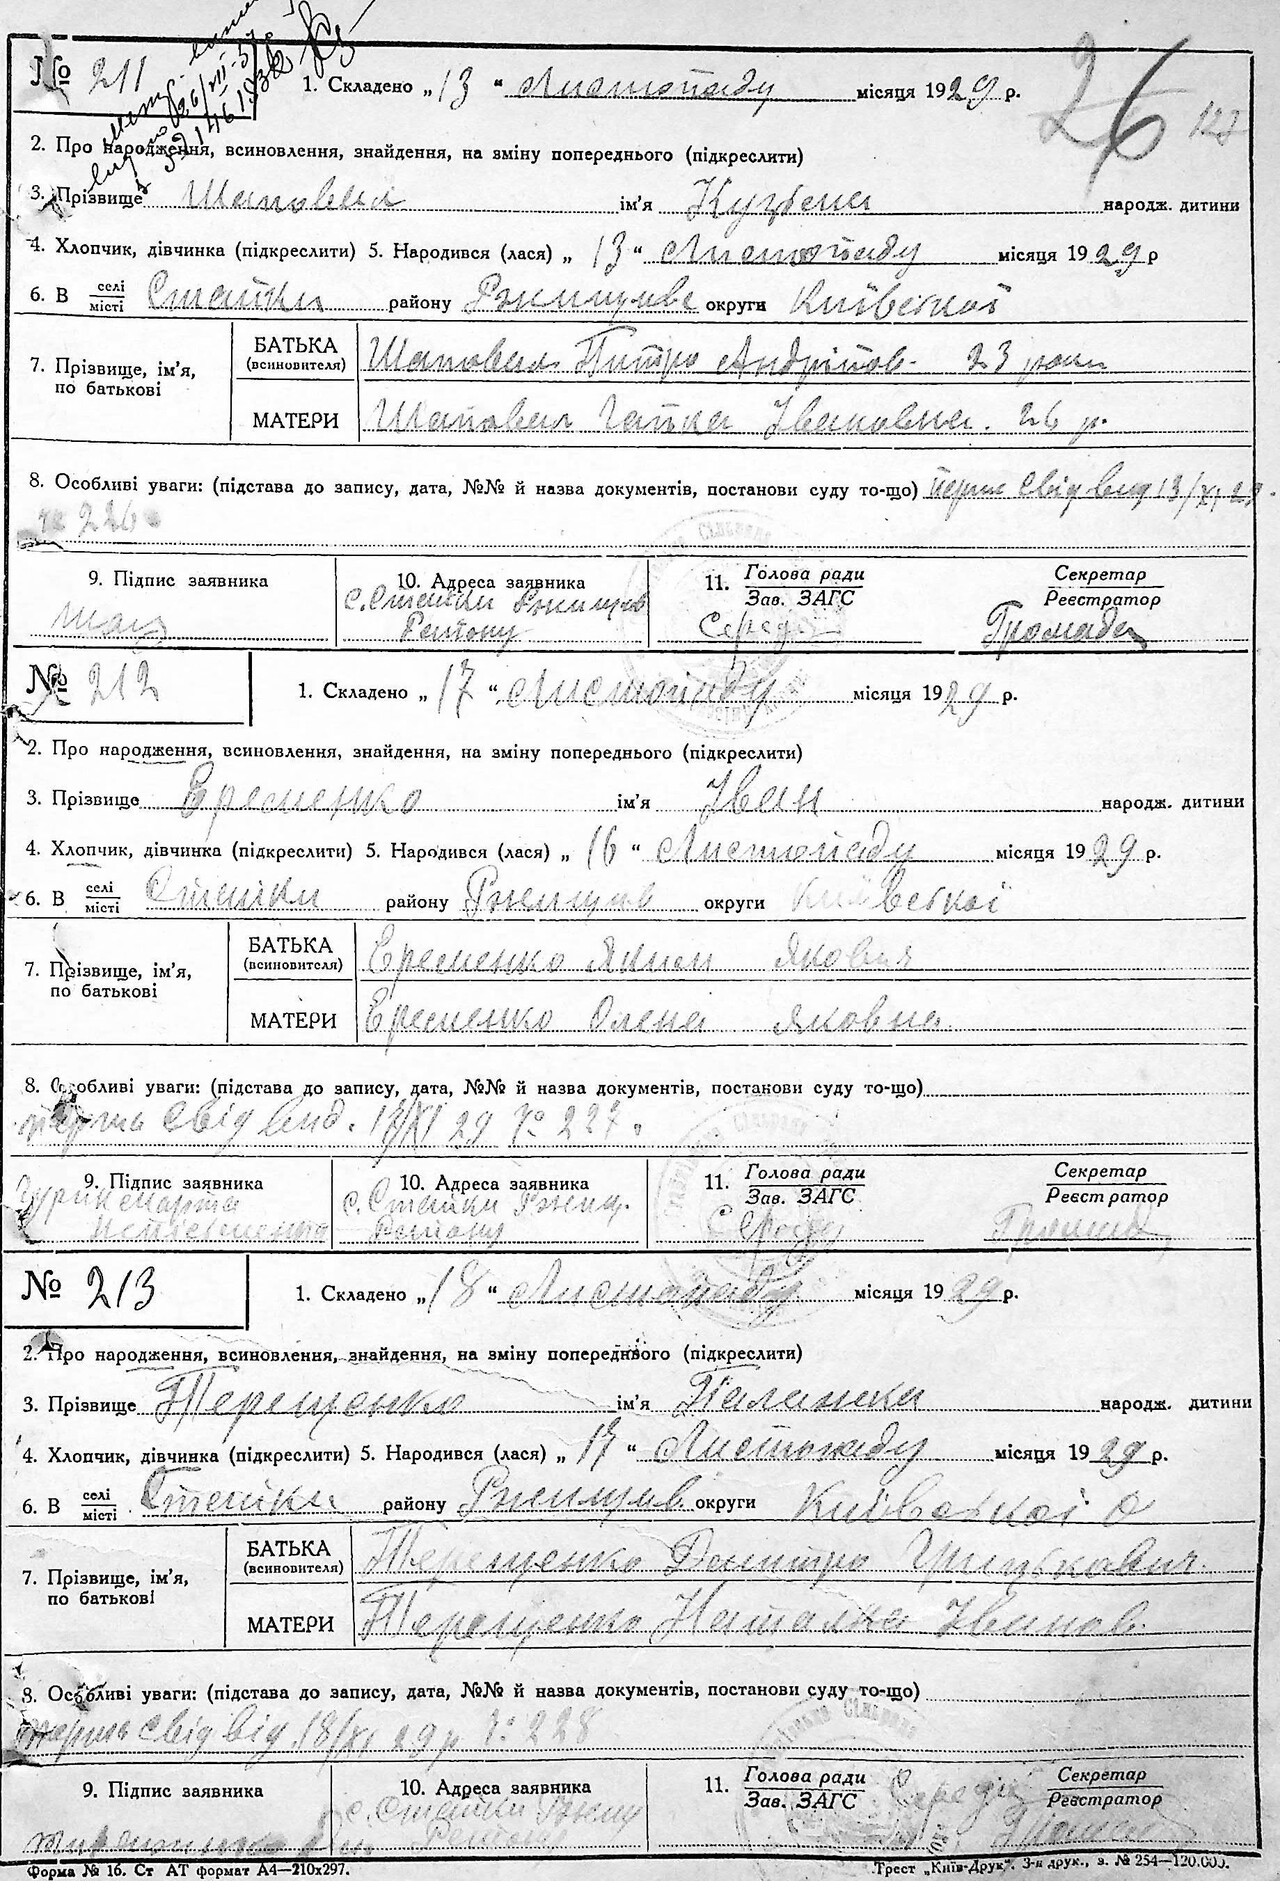 № 211
1. Складено „13“ Листопаду місяця 1929 р.
26
2. Про народження, всиновлення, знайдення, на зміну попереднього (підкреслити)
3. Прізвище Шаповал ім'я Кузьма народж. дитини
4. Хлопчик, дівчинка (підкреслити) 5. Народився (лася) „13“ Листопаду місяця 1929 р
6. В селі місті Стайки району Ржищів округи Київської
7. Прізвище, ім'я, по батькові
БАТЬКА (всиновителя) Шаповал Питро Андріїов. 23 роки
МАТЕРИ Шаповал Гапка Івановна. 26 р.
8. Особливі уваги: (підстава до запису, дата, №№ й назва документів, постанови суду то-що) перш свід вид 13/XI 29
№ 226
9. Підпис заявника
10. Адреса заявника
11. Голова ради Зав. ЗАГС
Секретар Реєстратор
с. Стайки Ржищів
Району
Середа
Громада
№ 212
1. Складено „17“ Листопаду місяця 1929 р.
2. Про народження, всиновлення, знайдення, на зміну попереднього (підкреслити)
3. Прізвище Єременко ім'я Іван народж. дитини
4. Хлопчик, дівчинка (підкреслити) 5. Народився (лася) „16“ Листопаду місяця 1929 р.
6. В селі місті Стайки району Ржищів округи Київської
7. Прізвище, ім'я, по батькові
БАТЬКА (всиновителя) Єременко Яким Якович
МАТЕРИ Єременко Олена Яковна
8. Особливі уваги: (підстава до запису, дата, №№ й назва документів, постанови суду то-що)
перша свід вид. 17/XI 29 № 227.
9. Підпис заявника
10. Адреса заявника
11. Голова ради Зав. ЗАГС
Секретар Реєстратор
с. Стайки Ржищ.
Району
Середа
№ 213
1. Складено „18“ Листопаду місяця 1929 р.
2. Про народження, всиновлення, знайдення, на зміну попереднього (підкреслити)
3. Прізвище Терещенко ім'я Палажка народж. дитини
4. Хлопчик, дівчинка (підкреслити) 5. Народився (лася) „17“ Листопаду місяця 1929 р.
6. В селі місті Стайки району Ржищів округи Київської О
7. Прізвище, ім'я, по батькові
БАТЬКА (всиновителя) Терещенко Дмитро Грицькович.
МАТЕРИ Терещенко Наталка Іванов.
8. Особливі уваги: (підстава до запису, дата, №№ й назва документів, постанови суду то-що)
перша свід від 18/XI 29 р № 228
9. Підпис заявника
10. Адреса заявника
11. Голова ради Зав. ЗАГС
Секретар Реєстратор
с. Стайки Ржищ
Району
Середа
Форма № 16. Ст АТ формат А4—210х297.
Трест „Київ-Друк“. 3-я друк., з. № 254—120.000.